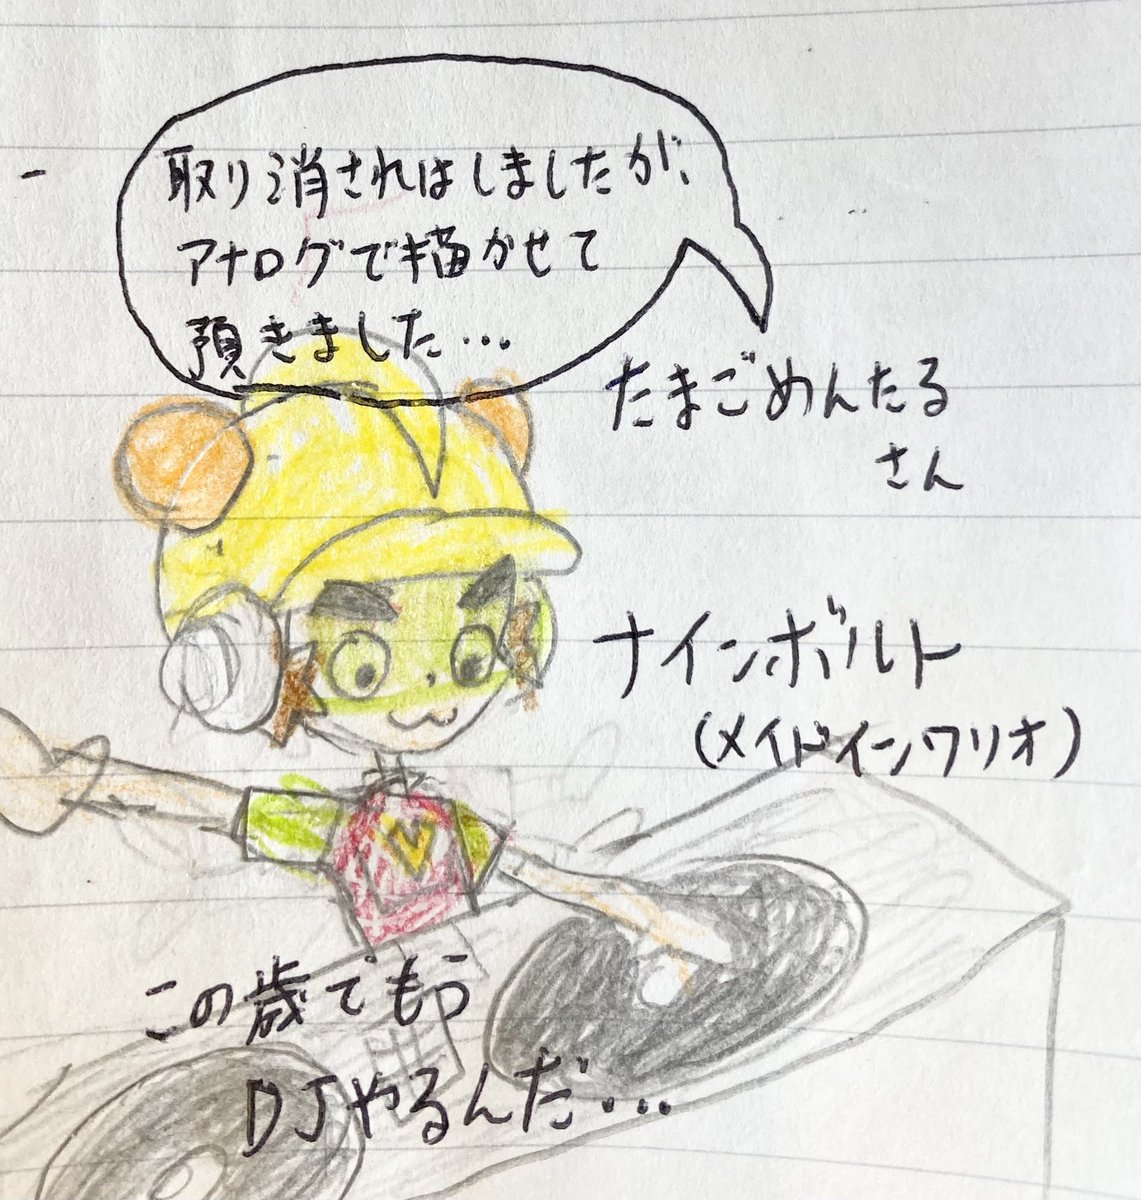 取り消されはしましたが、
アナログで描かせて
預きました…
たまごめんたる
さん
ナインボルト
(メイドインワリオ)
V
この歳でもう
DJやるんだ…